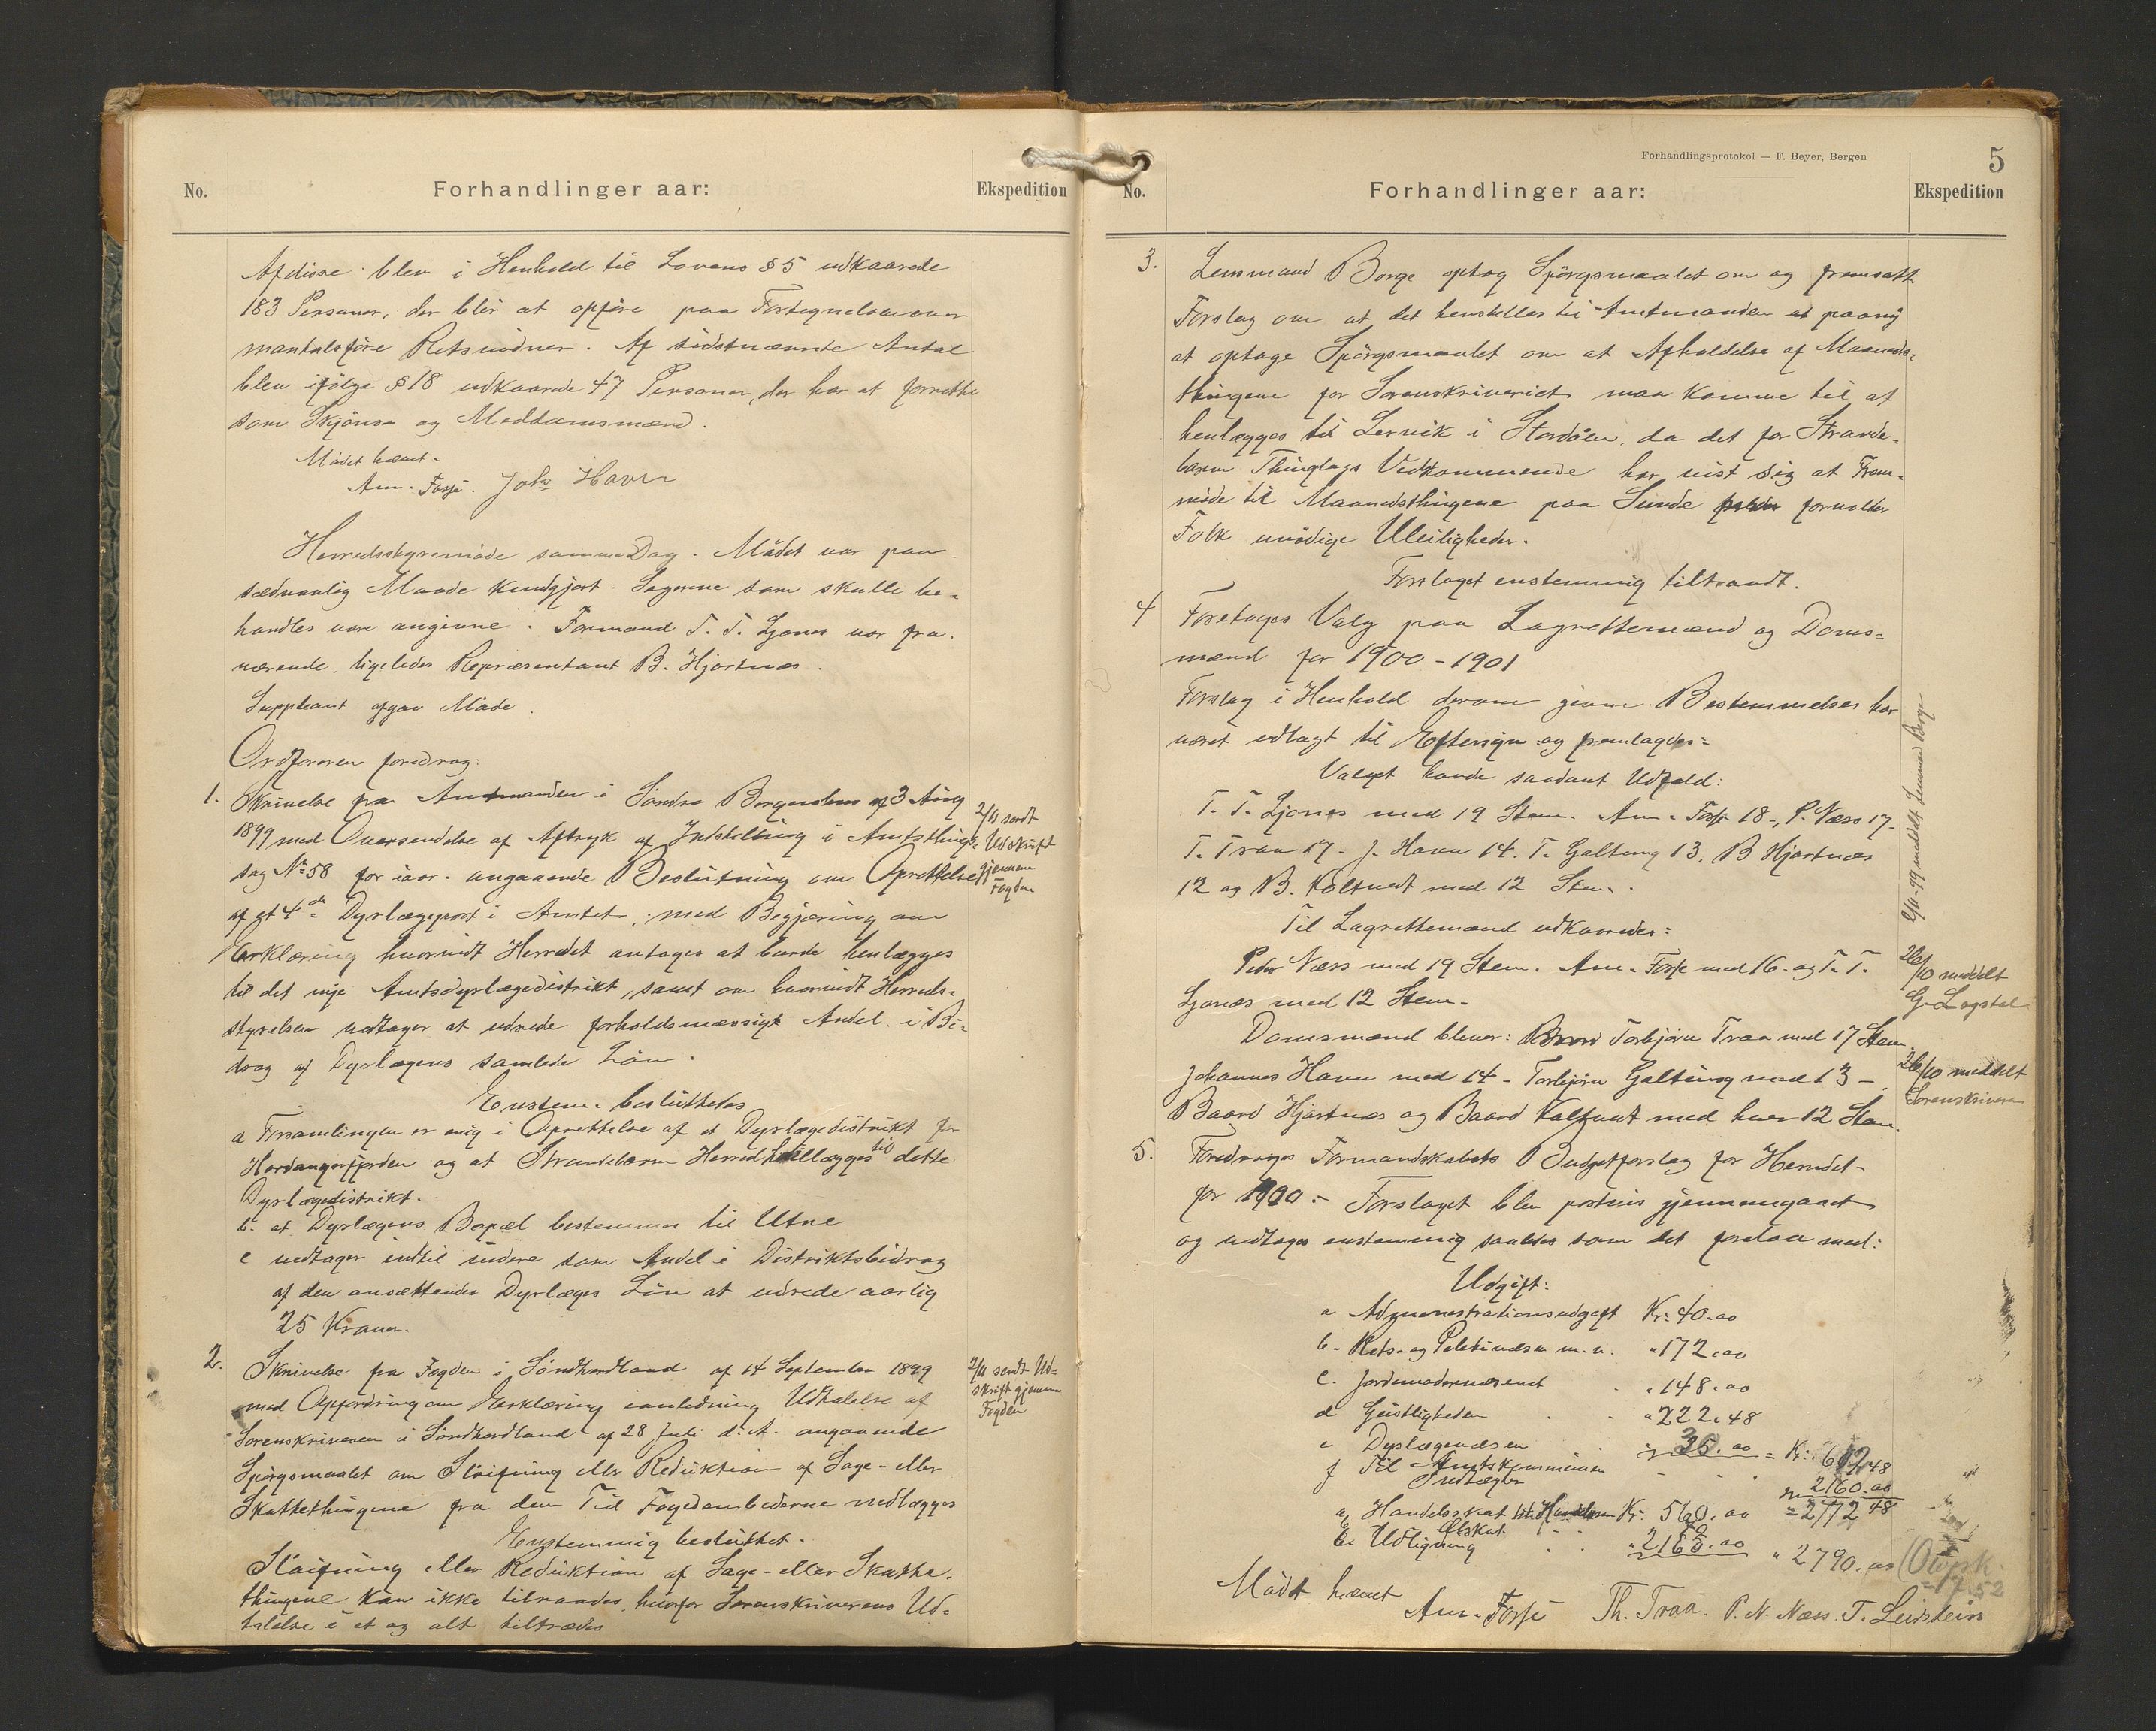 No.
Forhandlinger aar:
Ekspedition
Af disse blev i Henhold til Lovens § 5 udkaarede
183 Personer, der blir at opføre paa Fortegnelsen over
mantalsføre Retsvidner. Af sidstnævnte Antal
blev ifølge § 18 udkaarede 47 Personer, der har at forrette
som Skjöns og Meddomsmænd.
Mödet hævet.
Am. Fosse. Johs Havn
Herredsstyremöde samme Dag. Mödet var paa
sædvanlig Maade kundgjort. Sagerne som skulle be-
handles vare angivne. Formand T. T. Ljones var fra-
værende, ligeledes Repræsentant B. Hjortnæs.
Suppleant afgav Möde.
Ordføreren foredrog:
1. Skrivelse fra Amtmanden i Söndre Bergenhus af 3 Aug
1899 med Oversendelse af Aftryk af Indstilling i Amtsthings-
sag No 58 for iaar angaaende Beslutning om Oprettelse
af et 4de Dyrlægepost i Amtet, med Begjæring om
Erklæring hvorvidt Herredet antages at burde henlægges
til det nye Amtsdyrlægedistrikt, samt om hvorvidt Herreds-
styrelsen vedtager at udrede forholdsmæssigt Andel i Bi-
drag af Dyrlægens samlede Lön.
2/11 sendt
Udskrift
gjennem
Fogden
Enstem. besluttedes
a Forsamlingen er enig i Oprettelse af et Dyrlægedistrikt for
Hardangerfjorden og at Strandebarm Herred henlægges til dette
Dyrlægedistrikt.
b. at Dyrlægens Bopæl bestemmes til Utne
c vedtager indtil videre som Andel i Distriktsbidrag
af den ansættendes Dyrlæges Lön at udrede aarlig
25 Kroner.
2. Skrivelse fra Fogden i Söndhordland af 14 September 1899
med Opfordring om Erklæring ianledning Udtalelse af
Sorenskriveren i Söndhordland af 28 Juli d: A. angaaende
Spörgsmaalet om Slöifning eller Reduktion af Sage- eller
Skattethingene fra den Tid Fogedembederne nedlægges
2/11 sendt Ud-
skrift gjennem
Fogden
Enstemmig besluttet.
Slöifning eller Reduktion af Sage- eller Skatte-
thingene kan ikke tilraades, hvorfor Sorenskriverens Ud-
talelse i et og alt tiltrædes
Forhandlingsprotokol — F. Beyer, Bergen
5
No.
Forhandlinger aar:
Ekspedition
3. Lensmand Borge optog Spörgsmaalet om og fremsatte
Forslag om at det henstilles til Amtmanden at paany
at optage Spörgsmaalet om at Afholdelse af Maaneds-
thingene for Sorenskriveriet maa komme til at
henlægges til Lervik i Stordöen, da det for Strande-
barm Thinglags Vedkommende har vist sig at Frem-
möde til Maanedsthingene paa Sunde forvolder
Folk unödige Uleiligheder.
Forslaget enstemmig tiltraadt.
2/11-99 meddelt Lensmd Borge
4 Foretoges Valg paa Lagrettemænd og Doms-
mænd for 1900-1901
Forslag i Henhold derom givne Bestemmelser har
været udlagt til Eftersyn og fremlagdes-
Valget havde saadant Udfald:
T. T. Ljones med 19 Stem. Am. Fosse 18-, P. Næss 17-
T. Traa 17- J. Havn 14. T. Galtung 13, B Hjortnæs
12 og B. Koltvedt med 12 Stem.
Til Lagrettemænd udkaaredes:
Peder Næss med 19 Stem. Am. Fosse med 16- og T. T.
Ljonæs med 12 Stem.
26/10 meddelt
G- Lagstol
Domsmænd blever: Torbjörn Traa med 17 Stem.
Johannes Havn med 14- Torbjörn Galtung med 13-
Baard Hjortnæs og Baard Koltvedt med hver 12 Stem.
26/10 meddelt
Sorenskriveren
5. Foredroges Formandskabets Budgetforslag for Herredet
for 1900.- Forslaget blev postvis gjennemgaaet
og vedtoges enstemmig saaledes som det forelaa med:
Udgift:
a Administrationsudgift Kr: 40.00
b- Rets- og Politivæsen m.v. " 172.00
c. Jordemodervæsenet " 148.00
d Geistligheden " 222.48
e Dyrlægevæsen 25.00 = Kr:
f Til Amtskommunen 2160.00
Indtægter
a, Handelsskat Kr:
Ölskat
Udligning
" 2790.00
52
Mödet hævet
Am. Fosse Th. Traa. P. N. Næss. T. Leirstein